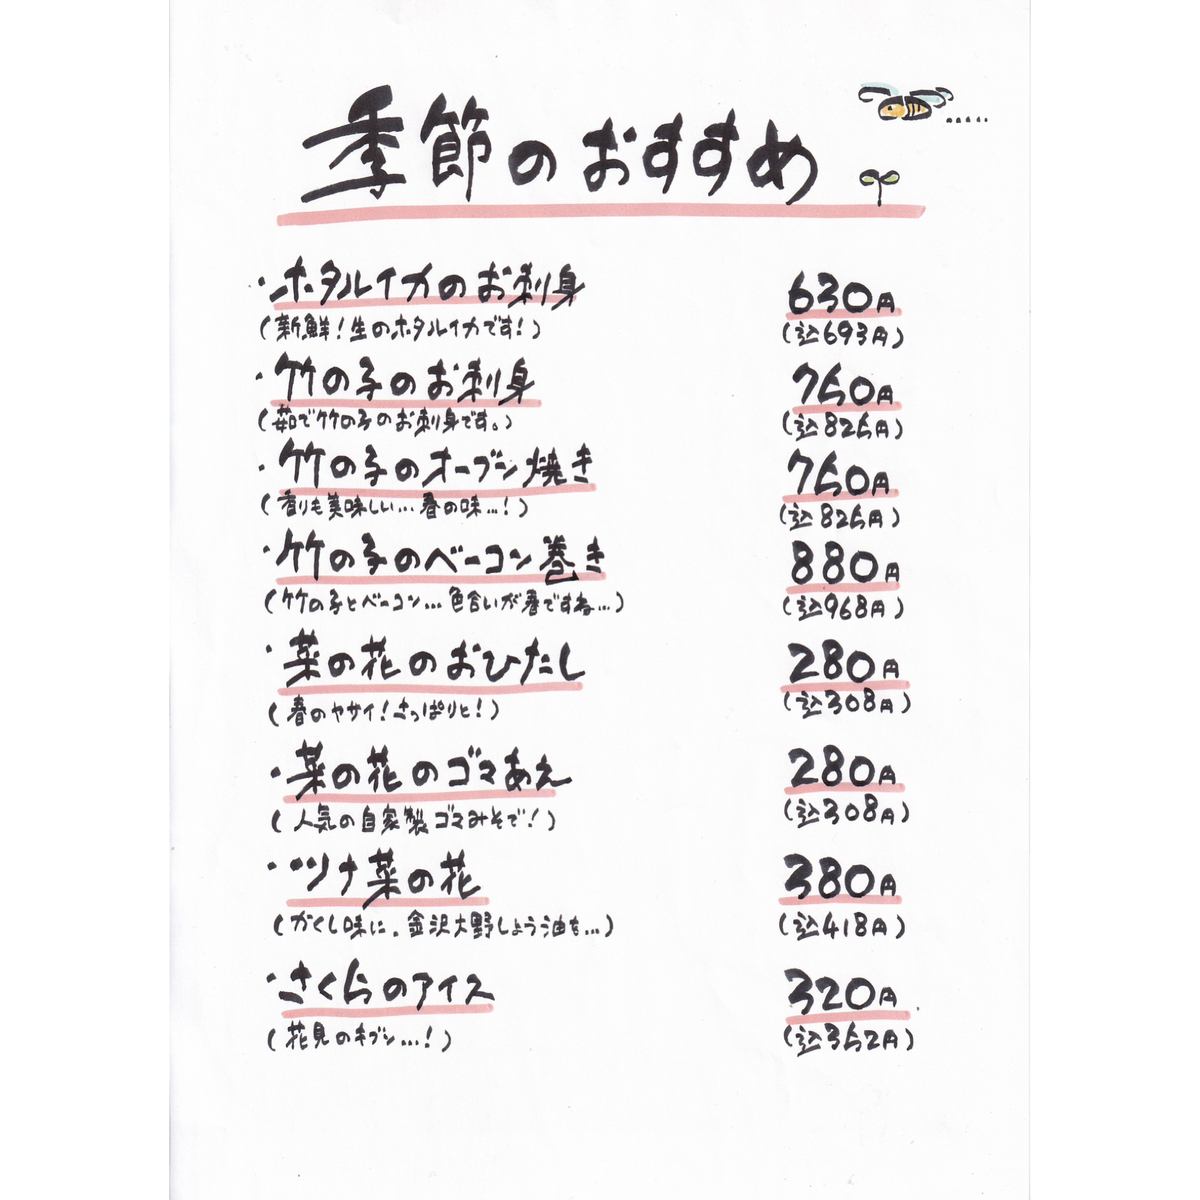 季節のおすすめ
・ホタルイカのお刺身 630円
(新鮮!生のホタルイカです!) (込693円)
・竹の子のお刺身 750円
(茹で竹の子のお刺身です。) (込825円)
・竹の子のオーブン焼き 750円
(香りも美味しい…春の味…!) (込825円)
・竹の子のベーコン巻き 880円
(竹の子とベーコン…色合いが春ですね…) (込968円)
・菜の花のおひたし 280円
(春のヤサイ!さっぱりと!) (込308円)
・菜の花のゴマあえ 280円
(人気の自家製ゴマみそで!) (込308円)
・ツナ菜の花 380円
(かくし味に。金沢大野しょう油を…) (込418円)
・さくらのアイス 320円
(花見のキブン…!) (込352円)